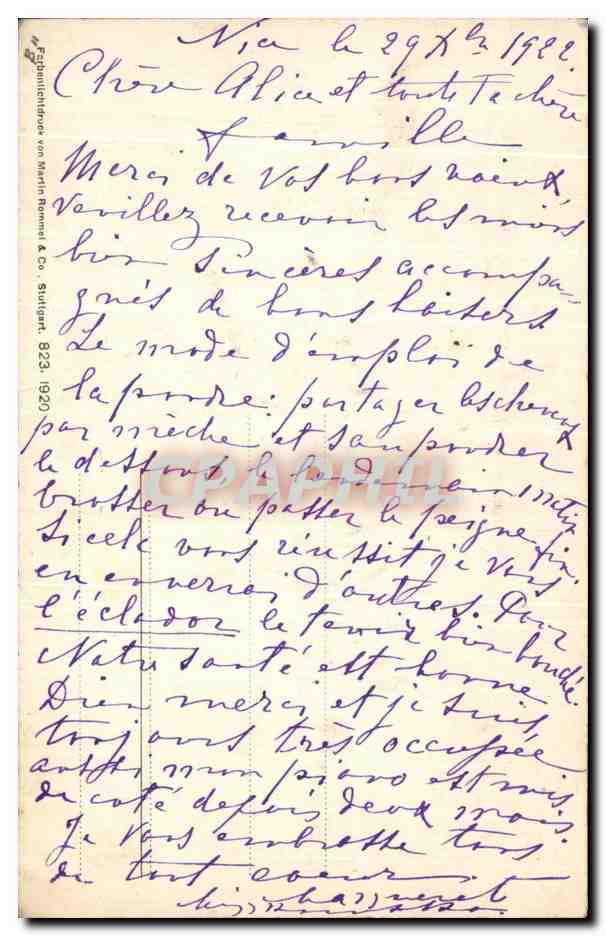 Nice le 29 Xbre 1922.
Chère Alice et toute ta chère
famille
Merci de vos bons voeux,
veuillez recevoir les miens
bien sincères accompa-
gnés de bons baisers
Le mode d'emploi de
la poudre: partager les cheveux
par mèche et saupoudrer
le dessous le lendemain matin
brosser ou passer le peigne fin.
Si cela vous réussit je vous
en enverrai d'autres. Pour
l'éclador le tenir bien bouché.
Notre santé est bonne
Dieu merci et je suis
toujours très occupée
aussi mon piano est mis
de coté depuis deux mois.
Je vous embrasse tous
de tout coeur
Farbenlichtdruck von Martin Rommel & Co., Stuttgart. 823. 1920
CPAPHIL